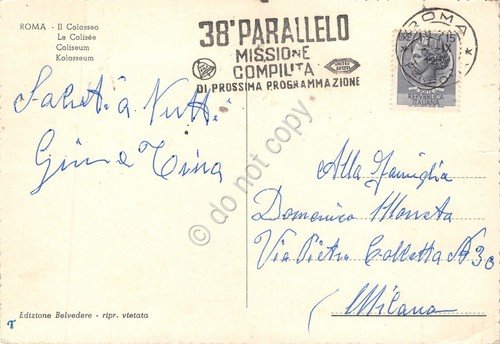 ROMA - Il Colosseo
Le Colisée
Coliseum
Kolosseum
38° PARALLELO
MISSIONE
COMPIUTA
DI PROSSIMA PROGRAMMAZIONE
ROMA
REPUBBLICA
ITALIANA
Saluti a Tutti
Gino e Tina
Alla Famiglia
Domenico
Via Pietro Colletta N 30
Milano
do not copy
Edizione Belvedere - ripr. vietata
T